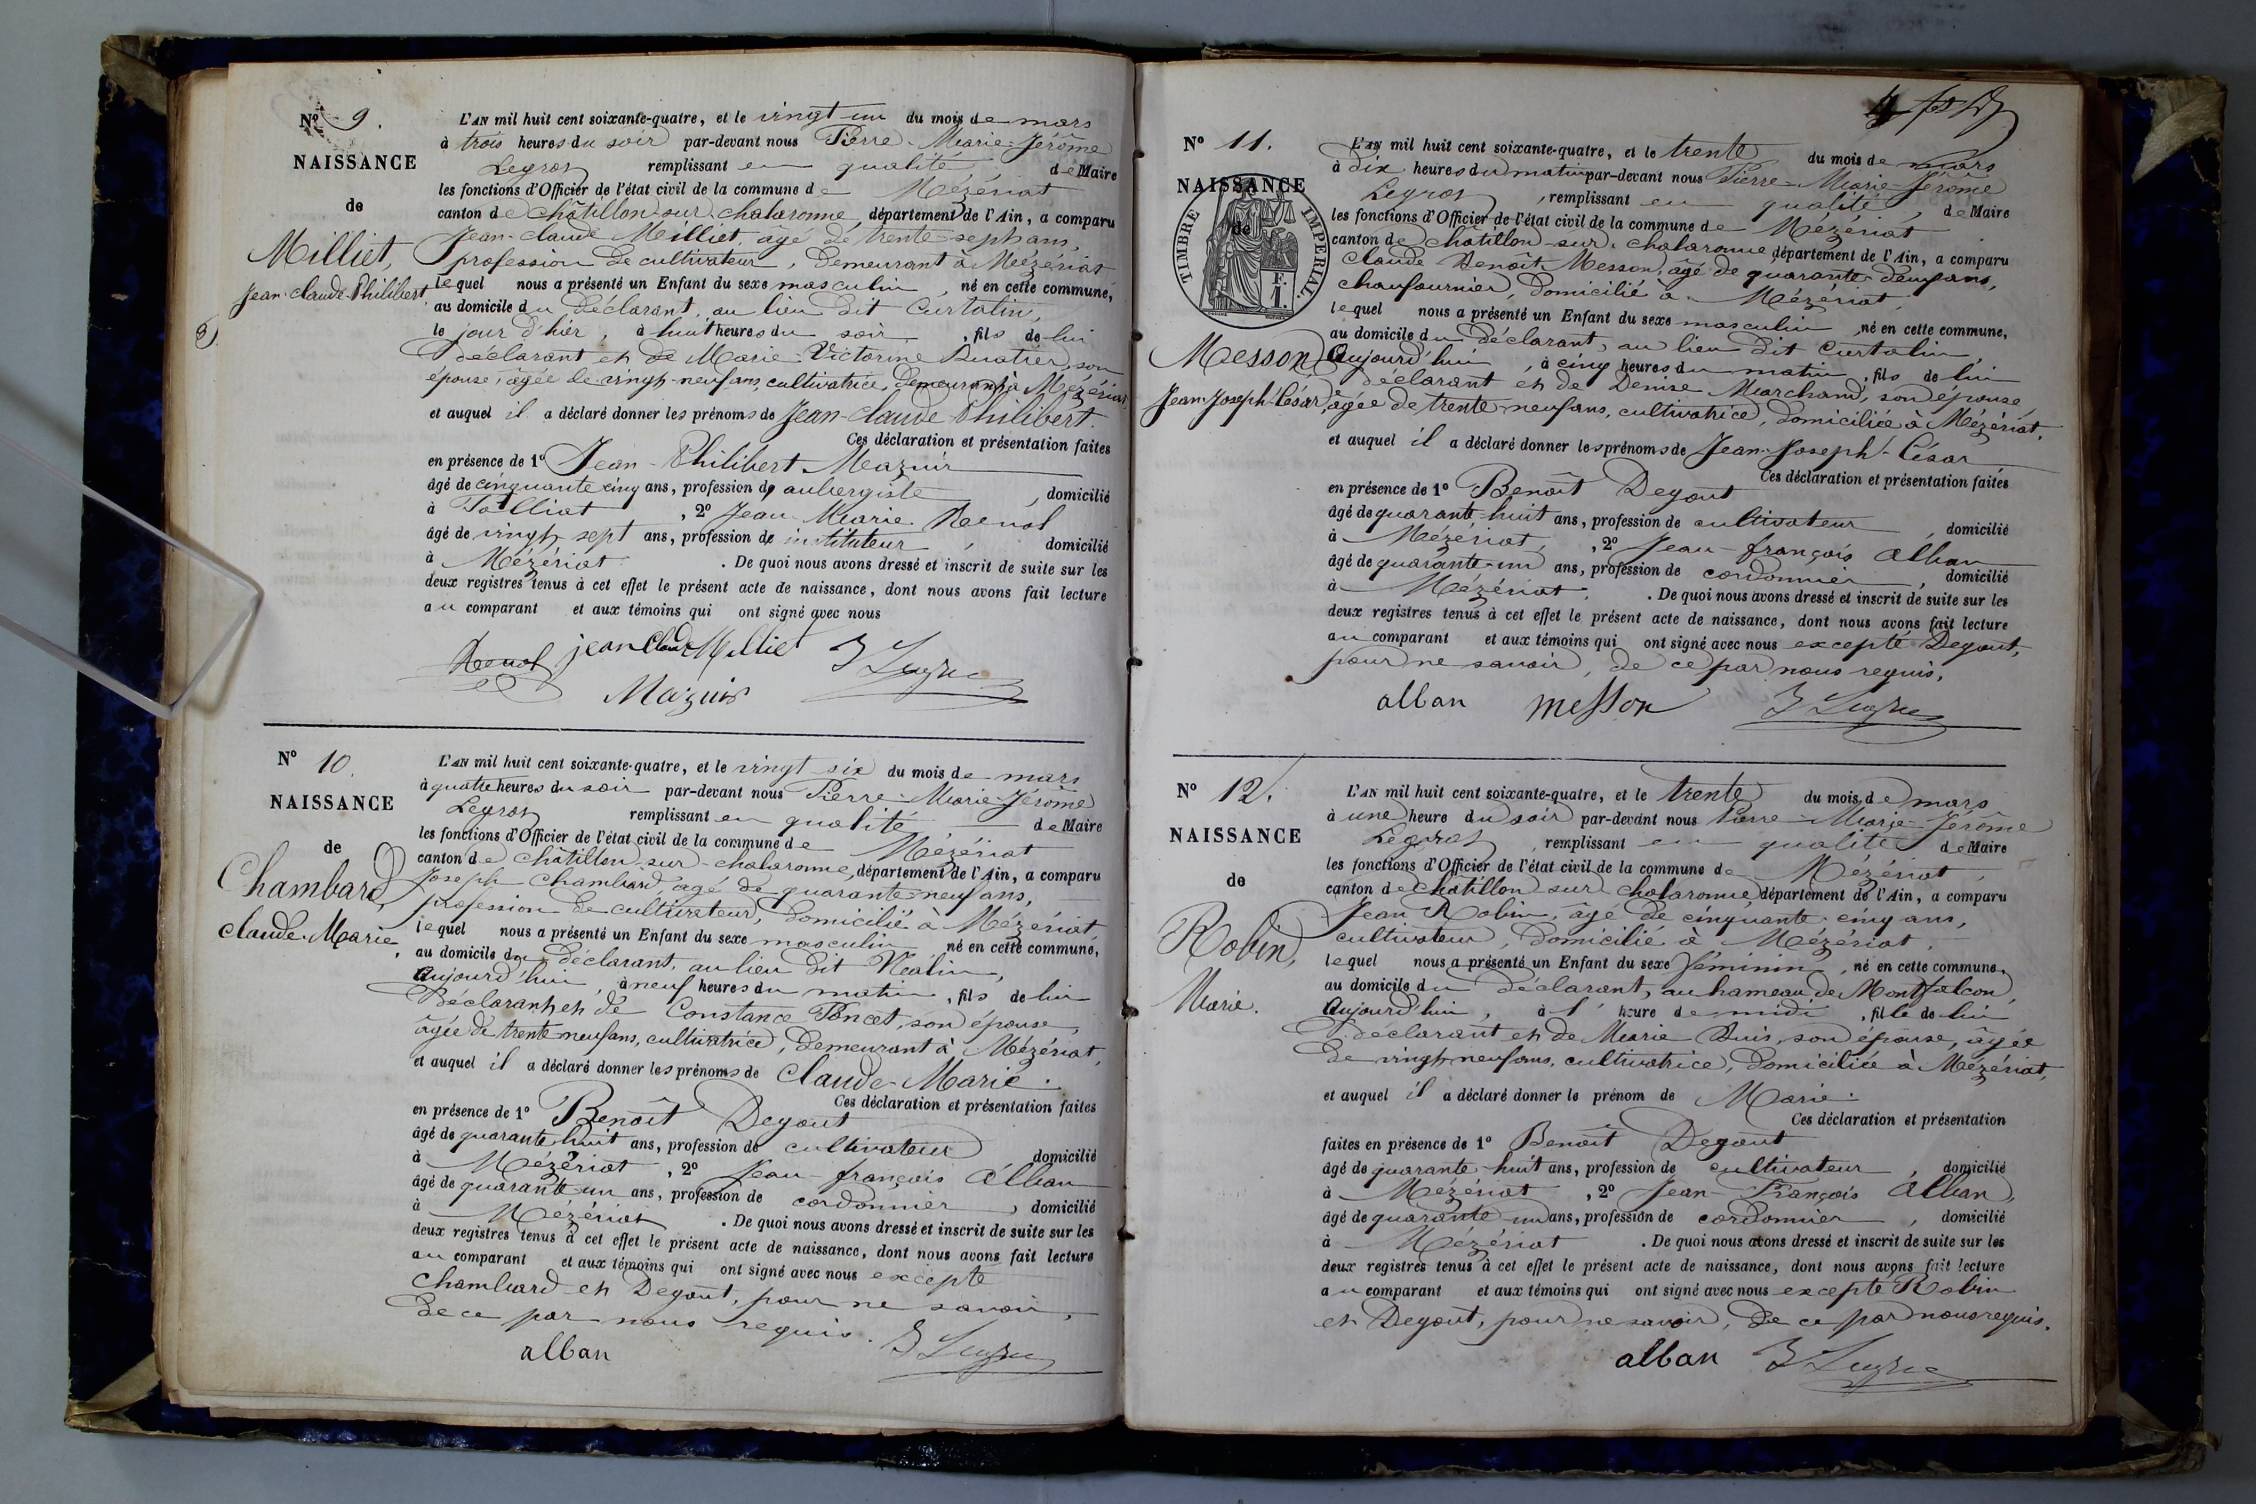 Nº 9.
NAISSANCE
de
Milliet,
Jean-Claude-Philibert.
L'AN mil huit cent soixante-quatre, et le vingt un du mois de mars
à trois heures du soir par-devant nous Pierre-Marie-Jérôme
Legros remplissant en qualité de Maire
les fonctions d'Officier de l'état civil de la commune de Mézériat
canton de Châtillon-sur-chalaronne, département de l'Ain, a comparu
Jean-claude Milliet, âgé de trente sept ans,
profession de cultivateur, demeurant à Mézériat
lequel nous a présenté un Enfant du sexe masculin, né en cette commune,
au domicile du déclarant, au lieu dit Curtalin,
le jour d'hier, à huit heures du soir, fils de lui
déclarant et de Marie-Victorine Buatier, son
épouse, âgée de vingt-neuf ans, cultivatrice, demeurant à Mézériat,
et auquel il a déclaré donner les prénoms de Jean-Claude-Philibert.
Ces déclaration et présentation faites
en présence de 1º Jean-Philibert Mazuir
âgé de cinquante cinq ans, profession de aubergiste, domicilié
à Polliat, 2º Jean-Marie Renol
âgé de vingt sept ans, profession de instituteur, domicilié
à Mézériat. De quoi nous avons dressé et inscrit de suite sur les
deux registres tenus à cet effet le présent acte de naissance, dont nous avons fait lecture
au comparant et aux témoins qui ont signé avec nous
Renol jean Claude Milliet J Legros
Mazuir
Nº 10.
NAISSANCE
de
Chambard,
claude-Marie.
L'AN mil huit cent soixante-quatre, et le vingt six du mois de mars
à quatre heures du soir par-devant nous Pierre-Marie-Jérôme
Legros remplissant en qualité de Maire
les fonctions d'Officier de l'état civil de la commune de Mézériat
canton de Châtillon-sur-chalaronne, département de l'Ain, a comparu
Joseph Chambard, âgé de quarante-neuf ans,
profession de cultivateur, domicilié à Mézériat
lequel nous a présenté un Enfant du sexe masculin, né en cette commune,
au domicile du déclarant, au lieu dit
Aujourd'hui, à neuf heures du matin, fils de lui
Déclarant et de Constance Poncet, son épouse,
âgée de trente neuf ans, cultivatrice, demeurant à Mézériat,
et auquel il a déclaré donner les prénoms de Claude-Marie.
Ces déclaration et présentation faites
en présence de 1º Benoît Degout
âgé de quarante huit ans, profession de cultivateur domicilié
à Mézériat, 2º Jean françois Alban
âgé de quarante-un ans, profession de cordonnier, domicilié
à Mézériat. De quoi nous avons dressé et inscrit de suite sur les
deux registres tenus à cet effet le présent acte de naissance, dont nous avons fait lecture
au comparant et aux témoins qui ont signé avec nous excepté
Chambard et Degout, pour ne savoir,
de ce par nous requis. J Legros
alban
Nº 11.
NAISSANCE
de
TIMBRE IMPERIAL.
1 F.
Messon
Jean-Joseph-César,
L'AN mil huit cent soixante-quatre, et le trente du mois de mars
à dix heures du matin par-devant nous Pierre-Marie-Jérôme
Legros, remplissant en qualité de Maire
les fonctions d'Officier de l'état civil de la commune de Mézériat
canton de Châtillon-sur-chalaronne département de l'Ain, a comparu
Claude Benoît Messon, âgé de quarante-deux ans,
chaufournier, domicilié à Mézériat,
lequel nous a présenté un Enfant du sexe masculin, né en cette commune,
au domicile du déclarant, au lieu dit Curtalin,
Aujourd'hui, à cinq heures du matin, fils de lui
déclarant et de Denise Marchand, son épouse,
âgée de trente-neuf ans, cultivatrice, domiciliée à Mézériat,
et auquel il a déclaré donner les prénoms de Jean-Joseph-César
Ces déclaration et présentation faites
en présence de 1º Benoît Degout
âgé de quarante-huit ans, profession de cultivateur, domicilié
à Mézériat, 2º Jean-françois Alban
âgé de quarante-un ans, profession de cordonnier, domicilié
à Mézériat. De quoi nous avons dressé et inscrit de suite sur les
deux registres tenus à cet effet le présent acte de naissance, dont nous avons fait lecture
au comparant et aux témoins qui ont signé avec nous excepté Degout,
pour ne savoir, de ce par nous requis.
alban messon J Legros
Nº 12.
NAISSANCE
de
Robin,
Marie.
L'AN mil huit cent soixante-quatre, et le trente du mois de mars
à une heure du soir par-devant nous Pierre-Marie-Jérôme
Legros, remplissant en qualité de Maire
les fonctions d'Officier de l'état civil de la commune de Mézériat,
canton de Châtillon-sur-chalaronne département de l'Ain, a comparu
Jean Robin, âgé de cinquante-cinq ans,
cultivateur, domicilié à Mézériat,
lequel nous a présenté un Enfant du sexe féminin, né en cette commune,
au domicile du déclarant, au hameau de Montfalcon,
Aujourd'hui, à l'heure de midi, fille de lui
déclarant et de Marie Buis, son épouse, âgée
de vingt-neuf ans, cultivatrice, domiciliée à Mézériat,
et auquel il a déclaré donner le prénom de Marie.
Ces déclaration et présentation
faites en présence de 1º Benoît Degout
âgé de quarante-huit ans, profession de cultivateur, domicilié
à Mézériat, 2º Jean-François Alban,
âgé de quarante-un ans, profession de cordonnier, domicilié
à Mézériat. De quoi nous avons dressé et inscrit de suite sur les
deux registres tenus à cet effet le présent acte de naissance, dont nous avons fait lecture
au comparant et aux témoins qui ont signé avec nous excepté Robin
et Degout, pour ne savoir, de ce par nous requis.
alban J Legros